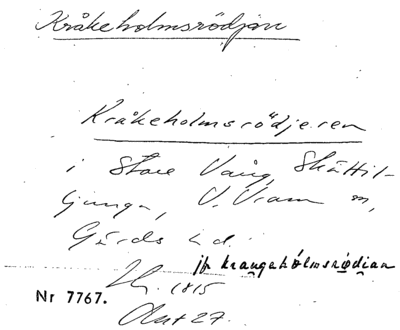 Kråkeholmsrödjan
Kråkeholmsrödjeren
i Stora Vång, Skättil-
ljunga, V. Vram s n,
Gärds h d.
jfr krangehólmsrödjan
1815
Nr 7767.
Akt 27